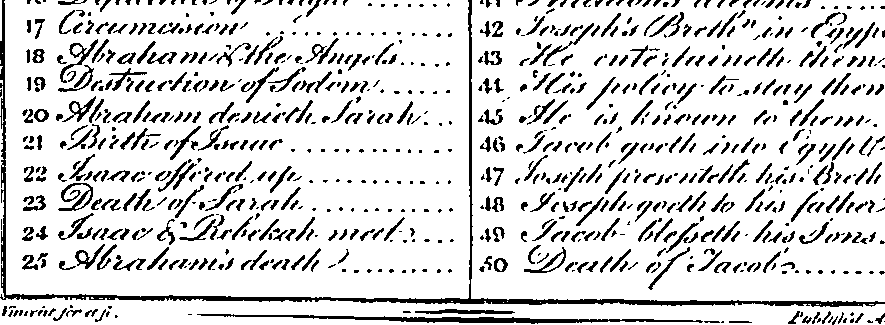 17 Circumcision
18 Abraham & the Angels
19 Destruction of Sodom
20 Abraham denieth Sarah
21 Birth of Isaac
22 Isaac offered up
23 Death of Sarah
24 Isaac & Rebekah meet
25 Abraham's death
42 Joseph's Breth.n in Egyp
43 He entertaineth them
44 His policy to stay them
45 He is known to them
46 Jacob goeth into Egypt
47 Joseph presenteth his Breth
48 Joseph goeth to his father
49 Jacob blesseth his Sons
50 Death of Jacob
Vincent scr et
Publish'd A